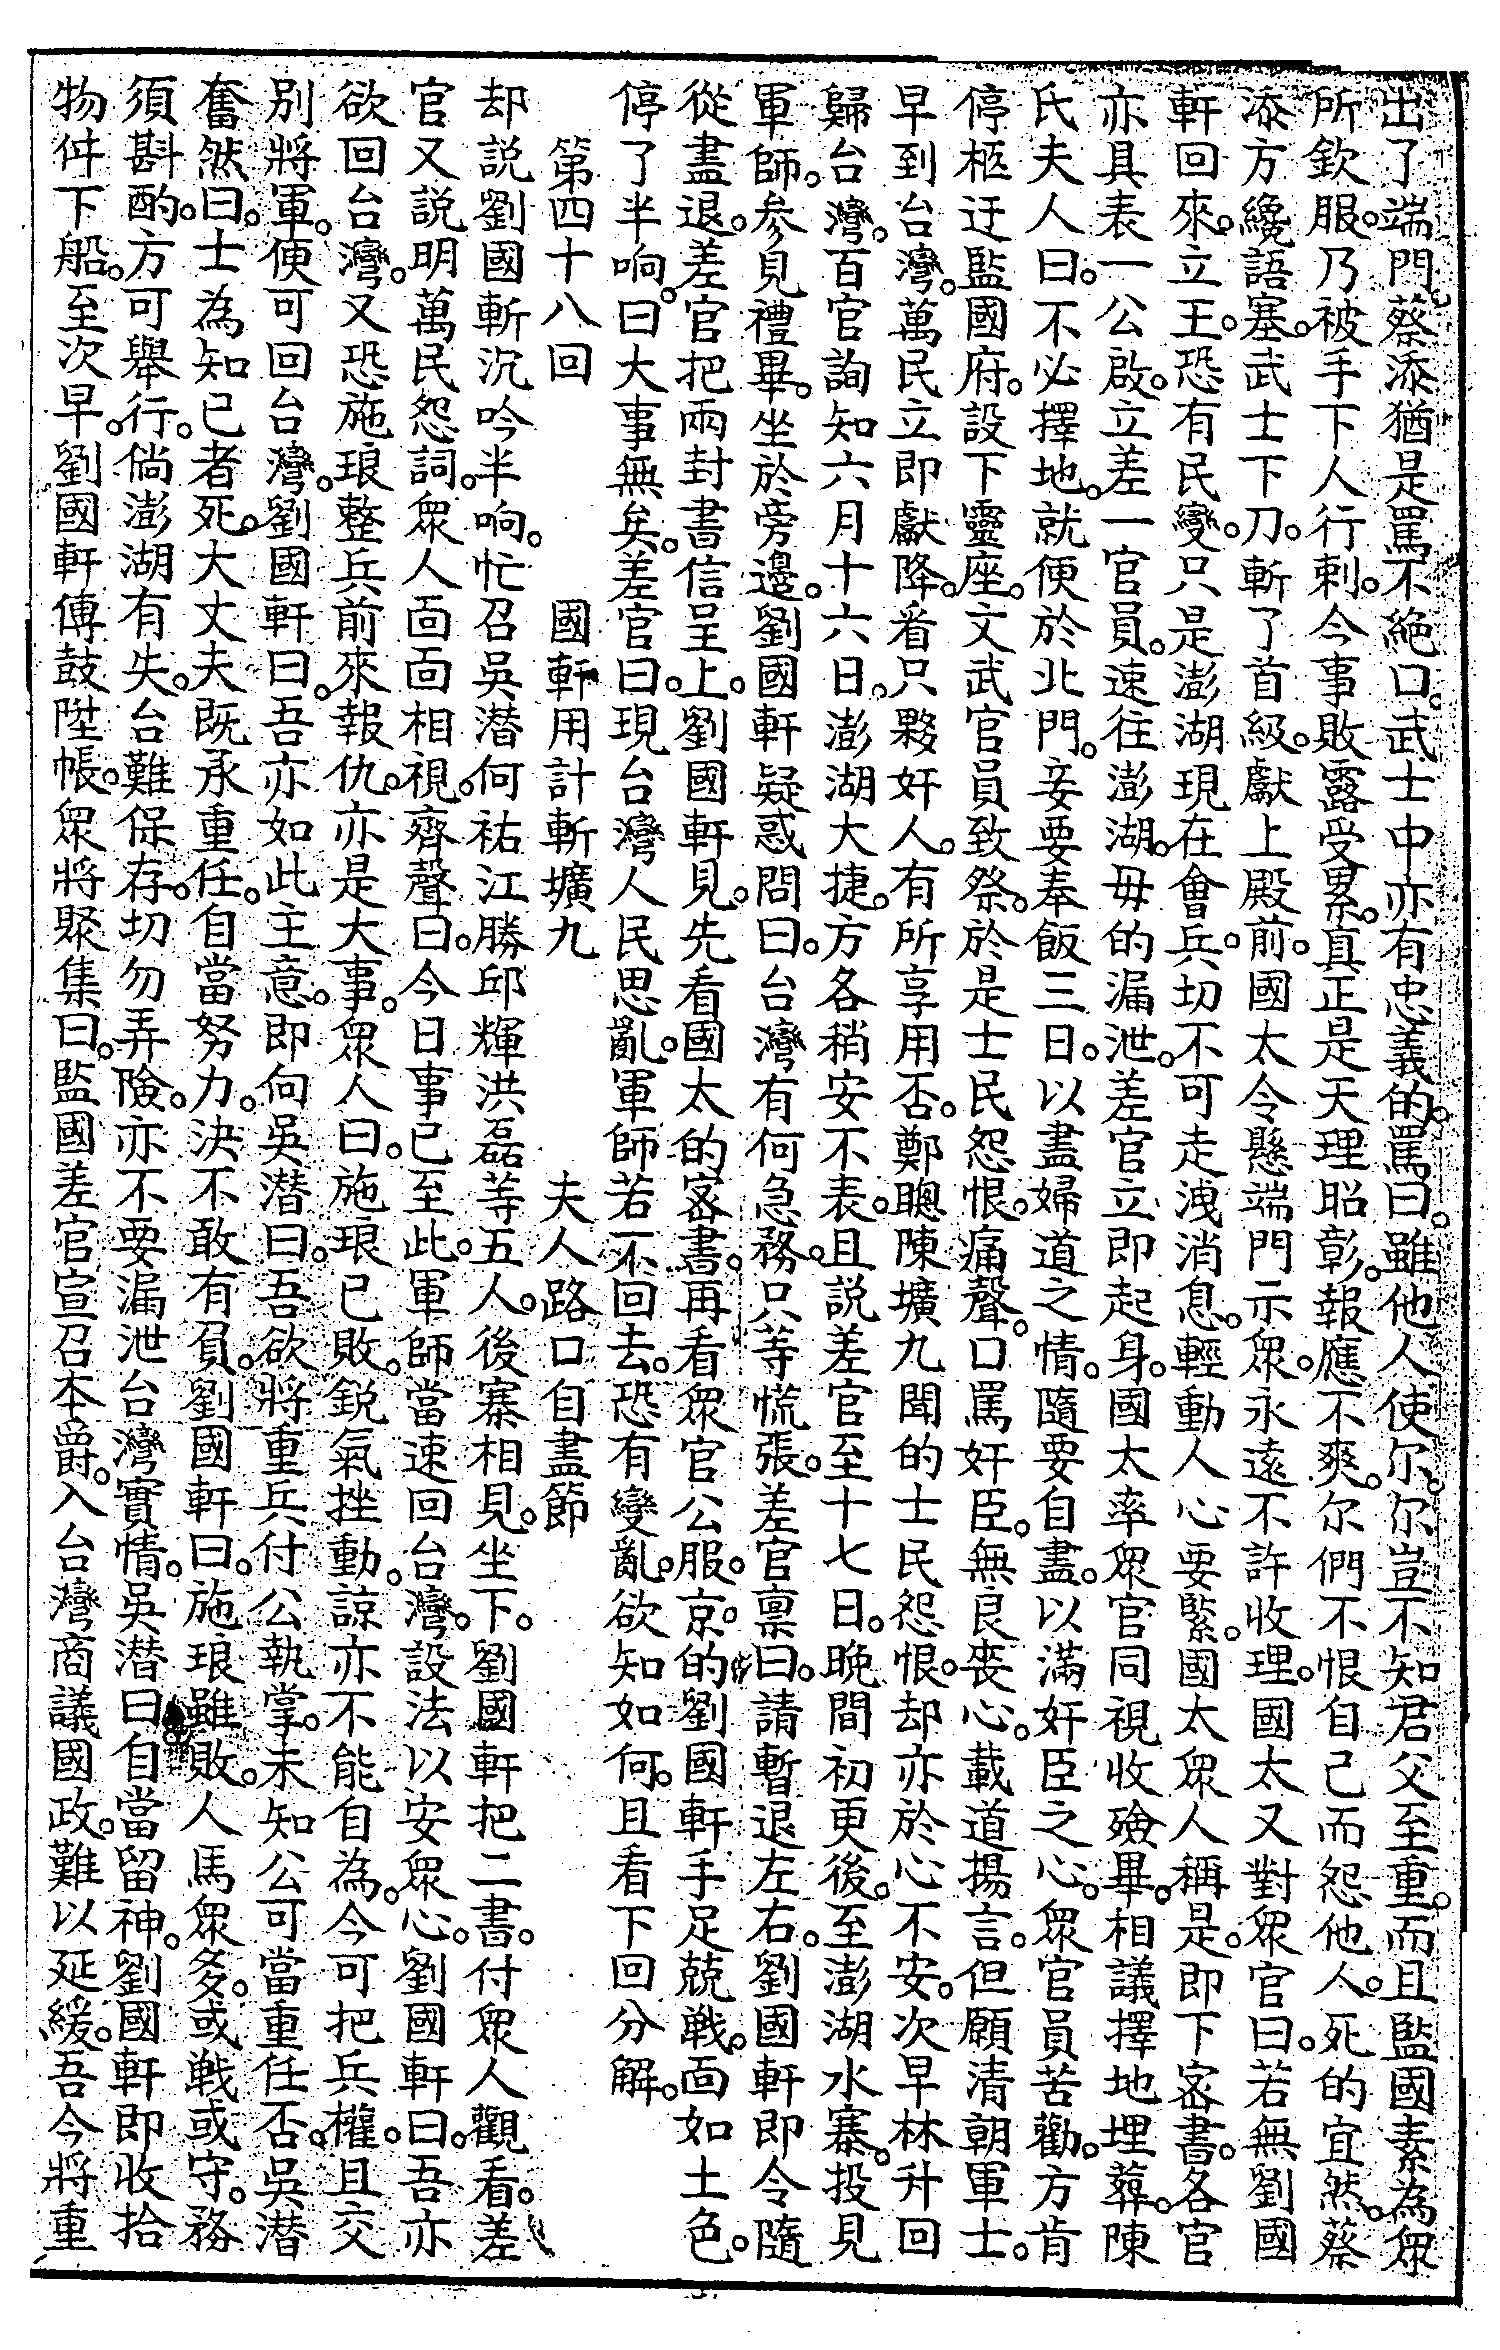 出了端門。蔡添猶是罵不絕口。武士中亦有忠義的。罵曰。雖他人使尔。尔豈不知君父至重。而且監國素為眾
所欽服。乃被手下人行刺。今事敗露受累。真正是天理昭彰。報應不爽。尔們不恨自己而怨他人。死的宜然。蔡
添方纔語塞。武士下刀。斬了首級。獻上殿前。國太令懸端門示眾。永遠不許收理。國太又對眾官曰。若無劉國
軒回來。立王。恐有民變。只是澎湖現在會兵。切不可走洩消息。輕動人心要緊。國太眾人稱是。即下密書。各官
亦具表一公啟。立差一官員。速往澎湖。毋的漏泄。差官立即起身。國太率眾官同視收殮畢。相議擇地埋葬。陳
氏夫人曰。不必擇地。就便於北門。妾要奉飯三日。以盡婦道之情。隨要自盡。以滿奸臣之心。眾官員苦勸。方肯
停柩迂監國府。設下靈座。文武官員致祭。於是士民怨恨。痛聲。口罵奸臣。無良喪心。載道揚言。但願清朝軍士。
早到台灣。萬民立即獻降。看只夥奸人。有所享用否。鄭聰陳壙九聞的士民怨恨。却亦於心不安。次早林升回
歸台灣。百官詢知六月十六日。澎湖大捷。方各稍安不表。且説差官至十七日。晚間初更後。至澎湖水寨。投見
軍師。參見禮畢。坐於旁邊。劉國軒疑惑問曰。台灣有何急務。只等慌張。差官稟曰。請暫退左右。劉國軒即令隨
從盡退。差官把兩封書信呈上。劉國軒見。先看國太的密書。再看眾官公服。京的劉國軒手足兢戰。面如土色。
停了半响。曰大事無矣。差官曰。現台灣人民思亂。軍師若不回去。恐有變亂。欲知如何。且看下回分解。
第四十八回　國軒用計斬壙九　夫人路口自盡節
却説劉國斬沉吟半响。忙召吳潛何祐江勝邱輝洪磊等五人。後寨相見。坐下。劉國軒把二書。付眾人觀看。差
官又説明萬民怨詞。眾人面面相視。齊聲曰。今日事已至此。軍師當速回台灣。設法以安眾心。劉國軒曰。吾亦
欲回台灣。又恐施琅整兵前來報仇。亦是大事。眾人曰。施琅已敗。鋭氣挫動。諒亦不能自為。今可把兵權。且交
別將軍。便可回台灣。劉國軒曰。吾亦如此主意。即向吳潛曰。吾欲將重兵付公執掌。未知公可當重任否。吳潛
奮然曰。士為知己者死。大丈夫既承重任。自當努力。決不敢有負。劉國軒曰。施琅雖敗。人馬眾多。或戰或守。務
須斟酌。方可舉行。倘澎湖有失。台難保存。切勿弄險。亦不要漏泄台灣實情。吳潛曰。自當留神。劉國軒即收拾
物件下船。至次早。劉國軒傳鼓陞帳。眾將聚集曰。監國差官宣召本爵。入台灣商議國政。難以延緩。吾今將重